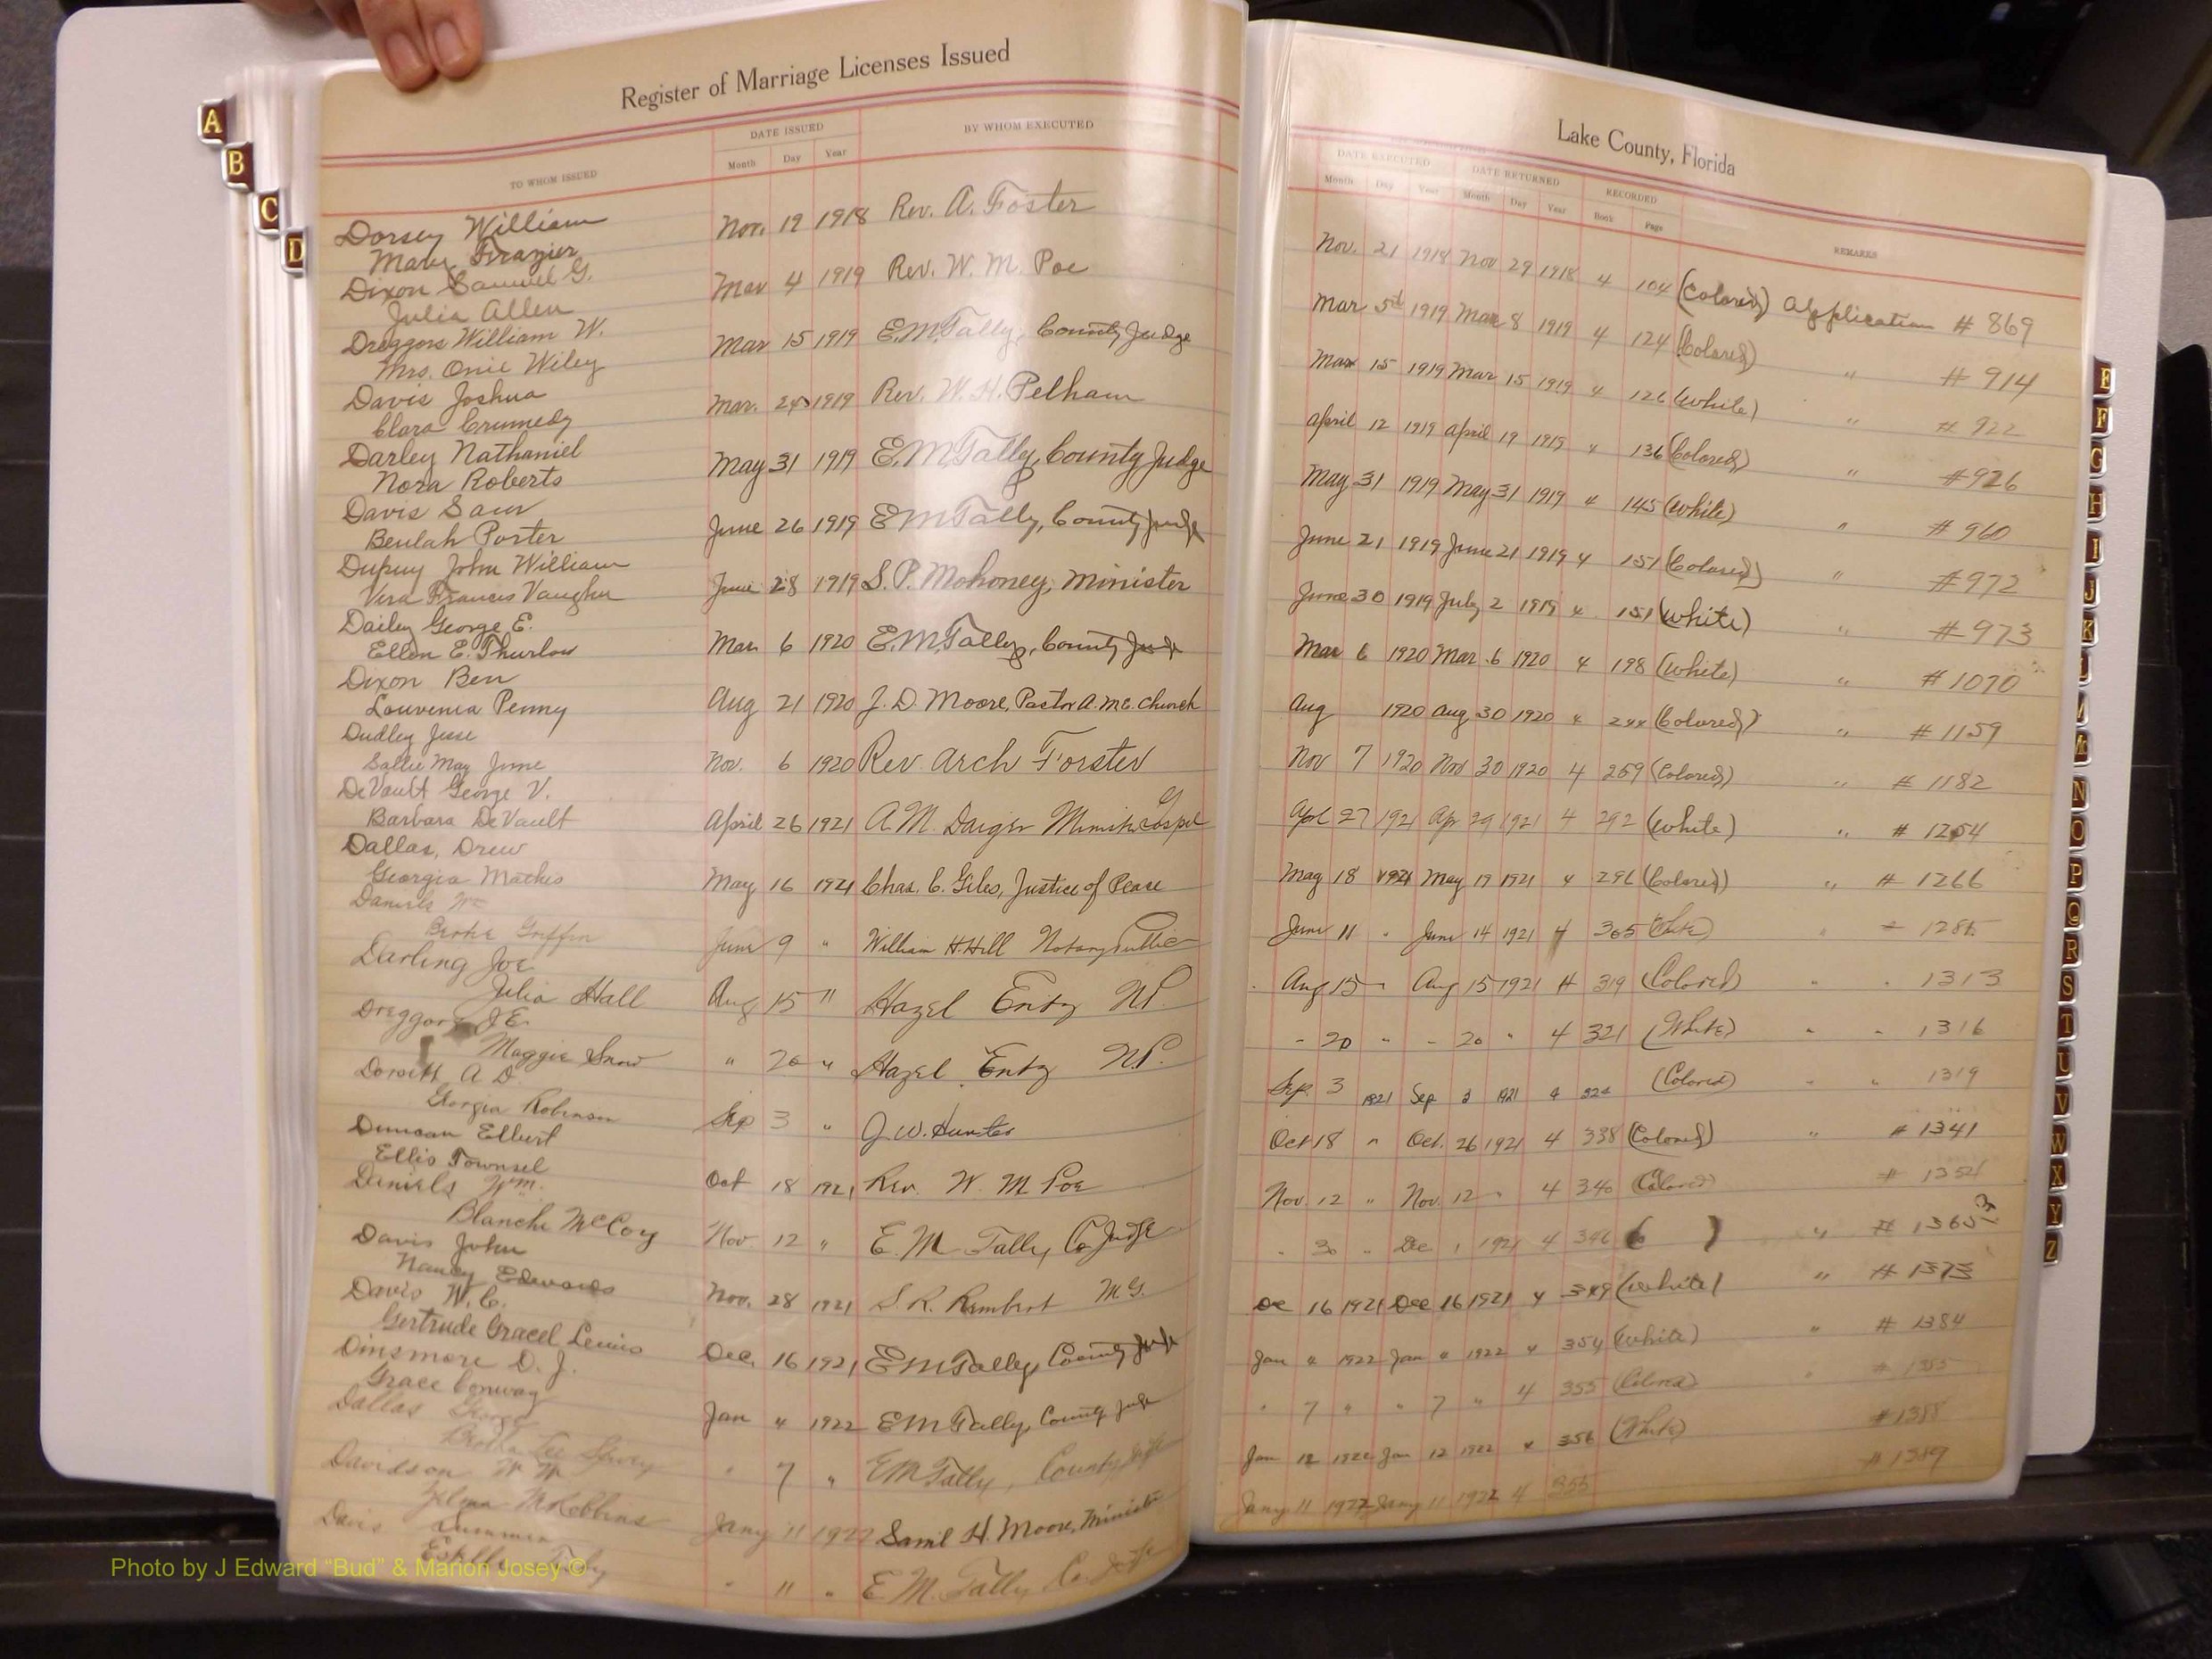 Register of Marriage Licenses Issued
TO WHOM ISSUED
DATE ISSUED
Month Day Year
BY WHOM EXECUTED
Dorsey William
Mary Frazier
Nov. 19 1918 Rev. A. Foster
Dixon Samuel G.
Julia Allen
Mar 4 1919 Rev. W. M. Poe
Dreggors William W.
Mrs. Onie Wiley
Mar 15 1919 E.M. Tally, County Judge
Davis Joshua
Clara Crumedy
Mar. 24 1919 Rev. W. H. Pelham
Darley Nathaniel
Nora Roberts
May 31 1919 E.M. Tally, County Judge
Davis Sam
Beulah Porter
June 26 1919 E.M. Tally, County Judge
Dupuy John William
Vera Frances Vaughn
June 28 1919 S. P. Mahoney, Minister
Dailey George E.
Ellen E. Thurlow
Mar. 6 1920 E.M. Tally, County Judge
Dixon Ben
Louvenia Penny
Aug 21 1920 J. D. Moore, Pastor A.M.E. Church
Dudley Jesse
Sallie May June
Nov. 6 1920 Rev. Arch Forster
DeVault George V.
Barbara DeVault
April 26 1921 A.M. Gospel
Dallas, Drew
Georgia Mathis
May 16 1921 Chas. C. Giles, Justice of Peace
Daniels Wm
Griffin
June 9 " William H. Hill Notary Public
Darling Joe
Julia Hall
Aug 15 " Hazel Entz N.P.
Dreggors J.E.
Maggie Snow
" 20 " Hazel Entz N.P.
A D.
Georgia Robinson
Sep 3 " J. W. Hunter
Duncan Elbert
Ellis Townsel
Oct 18 1921 Rev. W. M. Poe
Daniels Wm.
Blanche McCoy
Nov. 12 " E. M. Tally, Co Judge
Davis John
Nancy Edwards
Nov. 28 1921 S. R. Rembert M.G.
Davis W. C.
Gertrude Gracel Lewis
Dec. 16 1921 E.M. Tally, County Judge
Dinsmore D. J.
Grace Conway
Jan 4 1922 E.M. Tally, County Judge
Dallas George
Lee
" 7 " E.M. Tally, County Judge
Davidson W W
McRobbins
Jany 11 1922 Saml H. Moore, Minister
Davis
" 11 " E. M. Tally Co. Judge
Lake County, Florida
DATE EXECUTED DATE RETURNED RECORDED
Month Day Year Month Day Year Book Page REMARKS
Nov. 21 1918 Nov 29 1918 4 104 (Colored) Application # 869
Mar 5th 1919 Mar 8 1919 4 124 (Colored) " # 914
Mar 15 1919 Mar 15 1919 4 126 (White) " # 922
April 12 1919 April 19 1919 4 136 (Colored) " # 926
May 31 1919 May 31 1919 4 145 (White) " # 960
June 21 1919 June 21 1919 4 151 (Colored) " # 972
June 30 1919 July 2 1919 4 151 (White) " # 973
Mar 6 1920 Mar. 6 1920 4 198 (White) " # 1070
Aug 1920 Aug 30 1920 4 244 (Colored) " # 1159
Nov 7 1920 Nov 30 1920 4 259 (Colored) " # 1182
Apl 27 1921 Apr 29 1921 4 292 (White) " # 1254
May 18 1921 May 19 1921 4 296 (Colored) " # 1266
June 11 " June 14 1921 4 305 (White) "
Aug 15 " Aug 15 1921 4 319 (Colored) " " 1313
" 20 " " 20 " 4 321 (White) " " 1316
Sep. 3 1921 Sep 3 1921 4 (Colored) " " 1319
Oct 18 " Oct. 26 1921 4 338 (Colored) " # 1341
Nov. 12 " Nov. 12 " 4 340 (Colored) # 1354
" 30 " Dec 1 1921 4 346 ( ) " # 1365
Dec 16 1921 Dec 16 1921 4 349 (White) " # 1373
Jan 4 1922 Jan 4 1922 4 354 (White) " # 1384
" 7 " " 7 " 4 355 (Colored) "
Jan 12 1922 Jan 12 1922 4 356 (White) # 1388
Jany 11 1922 Jany 11 1922 4 355 # 1389
A
B
C
D
E
F
G
H
I
J
K
L
M
Mc
N
O
P
Q
R
S
T
U
V
W
X
Y
Z
Photo by J Edward "Bud" & Marion Josey ©